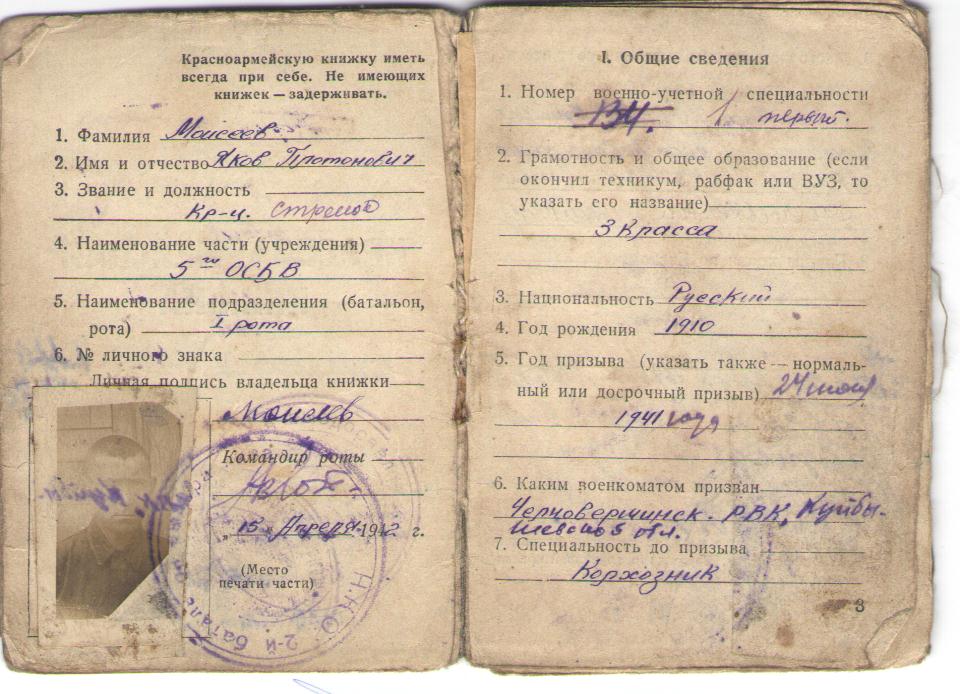 Красноармейскую книжку иметь
всегда при себе. Не имеющих
книжек — задерживать.
1. Фамилия Моисеев
2. Имя и отчество Яков Платонович
3. Звание и должность
Кр-ц. стрелок
4. Наименование части (учреждения)
5го ОСБВ
5. Наименование подразделения (батальон,
рота) I рота
6. № личного знака
Личная подпись владельца книжки
Моисеев
Командир роты
„15 Апреля 1942 г.
(Место
печати части)
Н.К.О. 2-й батальо
I. Общие сведения
1. Номер военно-учетной специальности
134. 1 первый.
2. Грамотность и общее образование (если
окончил техникум, рабфак или ВУЗ, то
указать его название)
3 Класса
3. Национальность Русский
4. Год рождения 1910
5. Год призыва (указать также — нормаль-
ный или досрочный призыв) 24
1941 года
6. Каким военкоматом призван
Челновершинск. РВК, Куйбы-
шевской обл.
7. Специальность до призыва
Колхозник
3